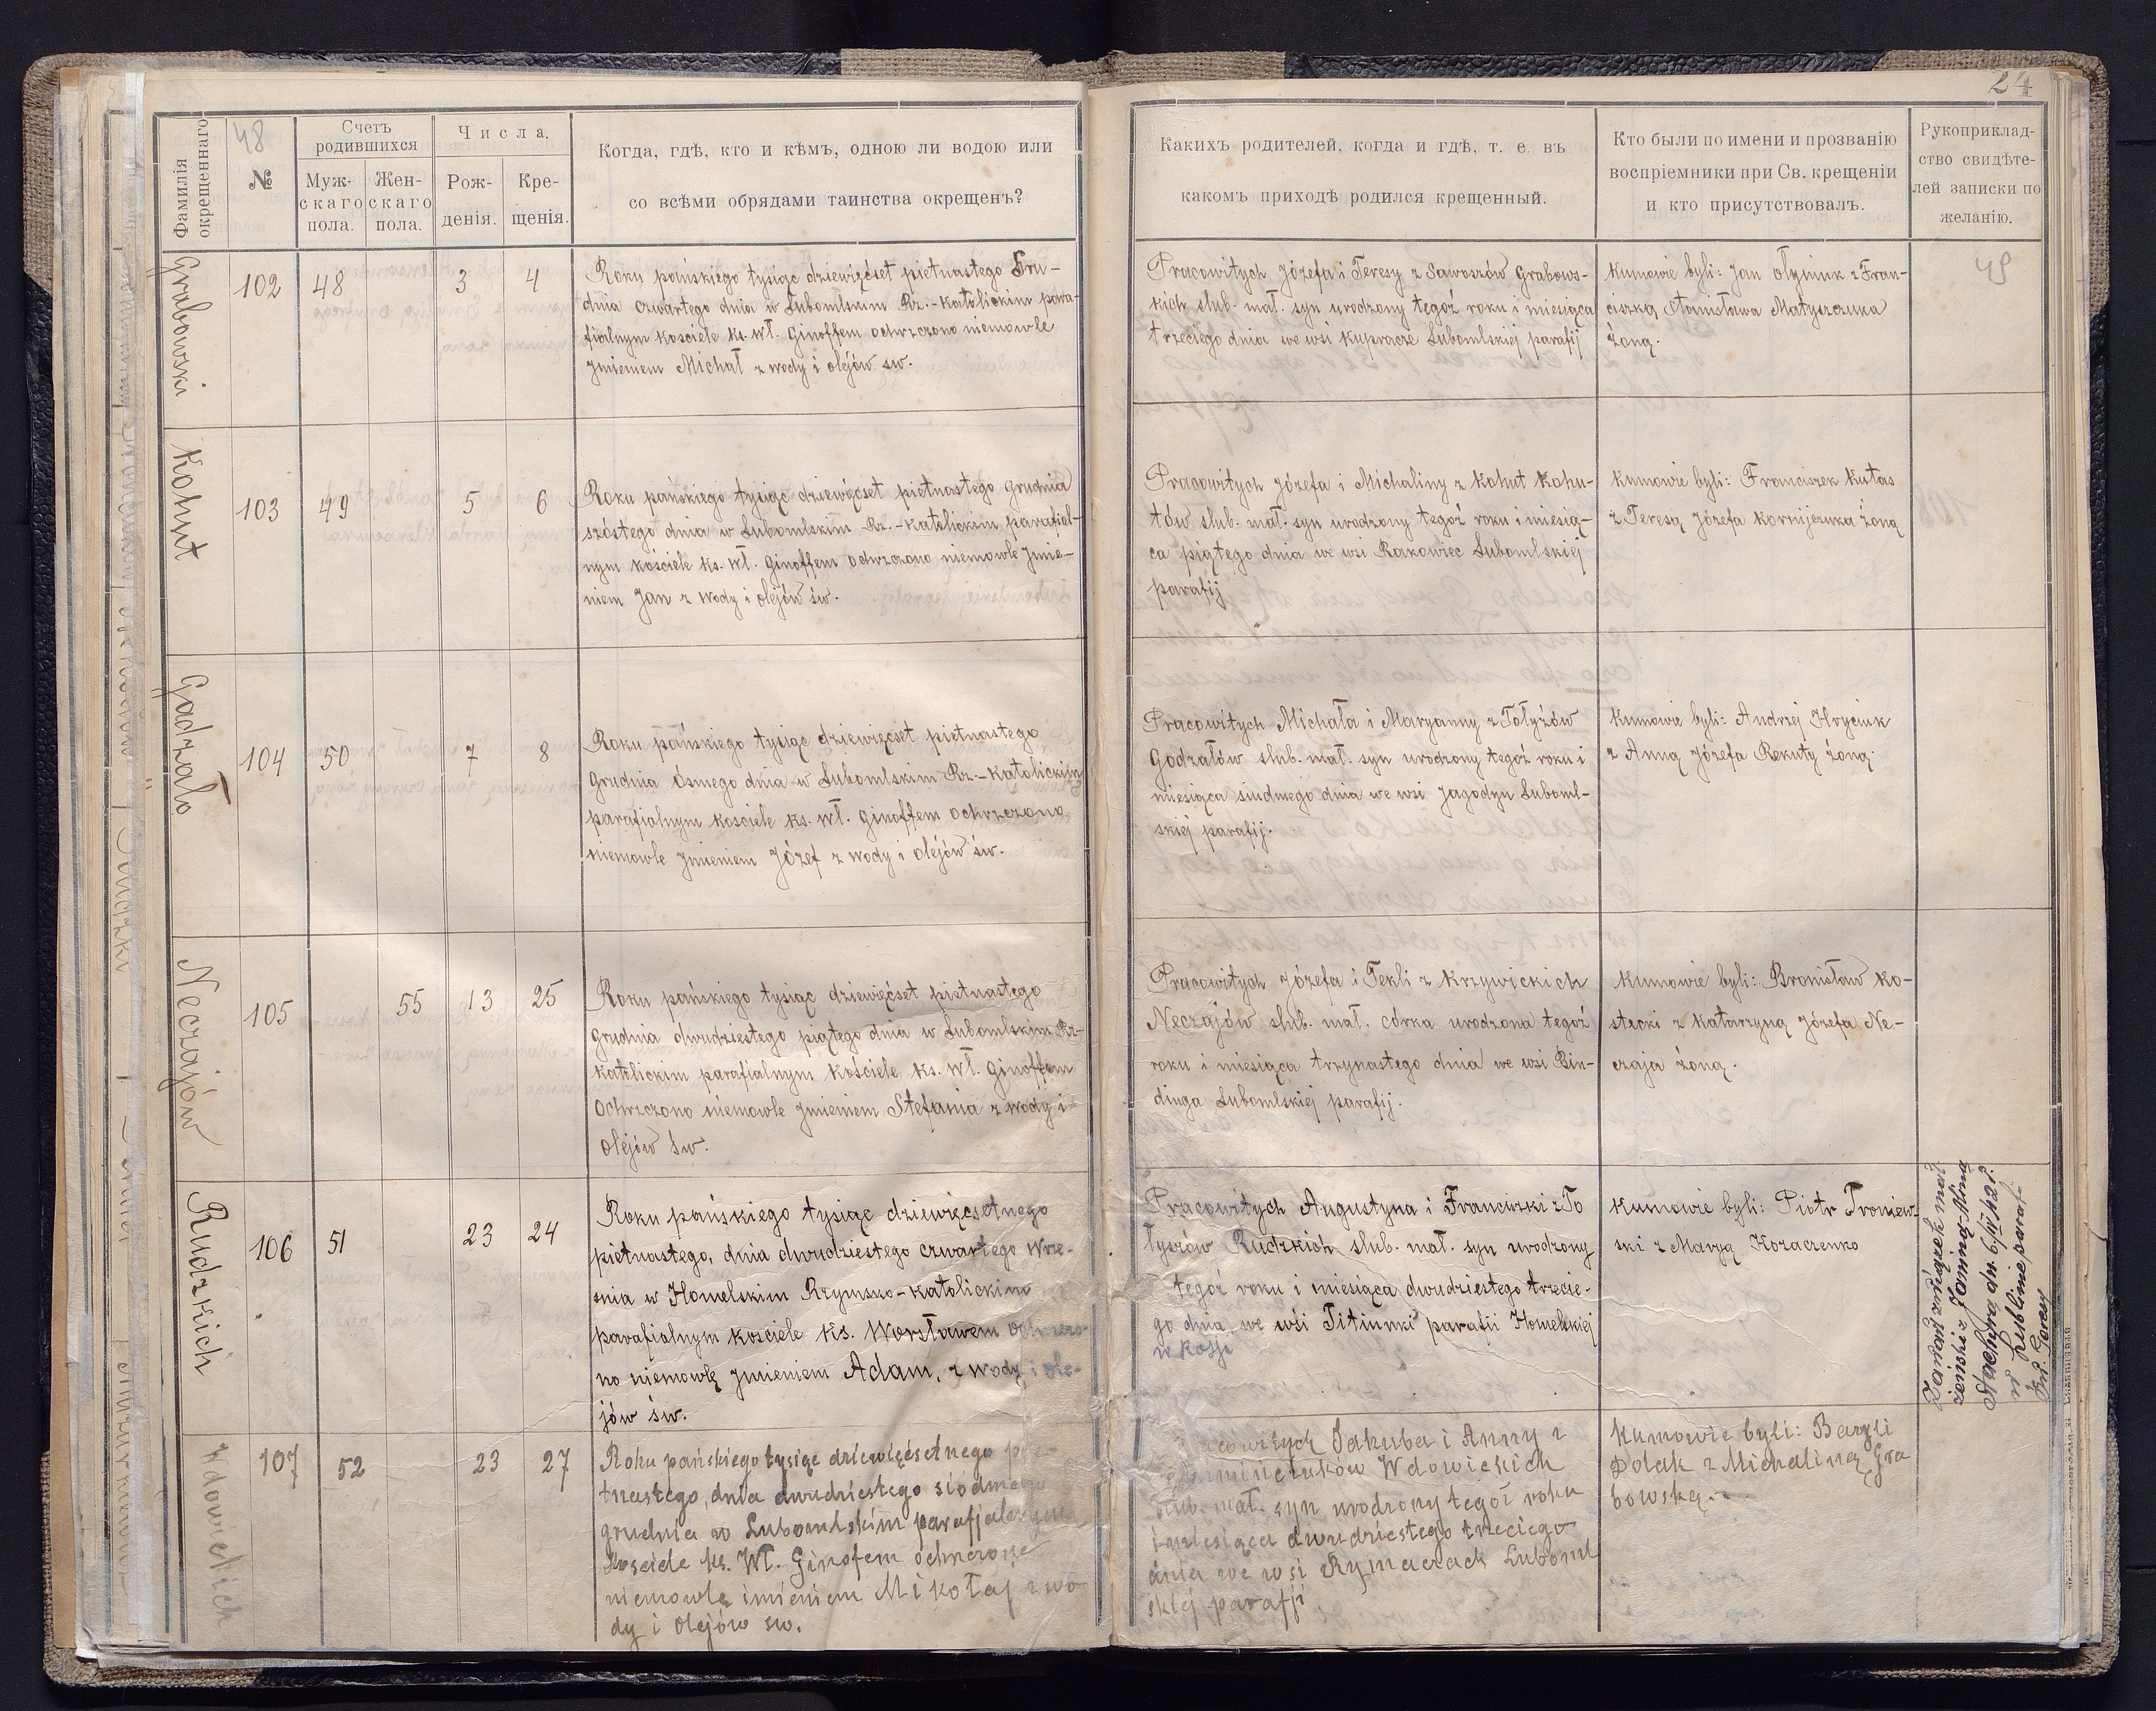 24
48
49
Фамилія окрещеннаго
№
Счетъ родившихся
Муж-
скаго
пола.
Жен-
скаго
пола.
Числа.
Рож-
денія.
Кре-
щенія.
Когда, гдѣ, кто и кѣмъ, одною ли водою или
со всѣми обрядами таинства окрещенъ?
Какихъ родителей, когда и гдѣ, т. е. въ
какомъ приходѣ родился крещенный.
Кто были по имени и прозванію
воспріемники при Св. крещеніи
и кто присутствовалъ.
Рукоприклад-
ство свидѣте-
лей записки по
желанію.
Grabowski
102 48 3 4
Roku pańskiego tysiąc dziewięćset piętnastego Gru-
dnia czwartego dnia w Lubomlskim Rz.-Katolickim para-
fialnym kościele ks. Wł. Ginoffem ochrzczono niemowle
Jmieniem Michał z wody i olejów św.
Pracowitych Józefa i Teresy z Sawoszów Grabows-
kich slub. mał. syn urodzony tegoż roku i miesiąca
trzeciego dnia we wsi Kupracze Lubomlskiej parafij
Kumowie byli: Jan Olyniuk z Fran-
ciszką Stanisława Matyszczuka
żoną.
Kohut
103 49 5 6
Roku pańskiego tysiąc dziewięćset piętnastego Grudnia
szóstego dnia w Lubomlskim Rz.-Katolickim parafial-
nym kościele ks. Wł. Ginoffem ochrzczono niemowle Jmie-
niem Jan z wody i olejów św.
Pracowitych Józefa i Michaliny z Kohut Kohu-
tów slub. mał. syn urodzony tegoż roku i miesią-
ca piątego dnia we wsi Rakowiec Lubomlskiej
parafij
Kumowie byli: Franciszek Kutas
z Teresą Józefa Kornijczuka żoną
Gadzało
104 50 7 8
Roku pańskiego tysiąc dziewięćset piętnastego
Grudnia Ósmego dnia w Lubomlskim Rz.-Katolickim
parafialnym kościele ks. Wł. Ginoffem ochrzczono
niemowle Jmieniem Józef z wody i olejów św.
Pracowitych Michała i Maryanny z Tołyżów
Godzałów slub. mał. syn urodzony tegoż roku i
miesiąca siudmego dnia we wsi Jagodyn Luboml-
skiej parafij.
Kumowie byli: Andrzej Hryciuk
z Anną Józefa Rekuty żoną.
Neczajów
105 55 13 25
Roku pańskiego tysiąc dziewięćset piętnastego
Grudnia dwudziestego piątego dnia w Lubomlskim Rz-
Katolickim parafialnym kościele ks. Wł. Ginoffem
Ochrzczono niemowle Jmieniem Stefania z wody i
olejów św.
Pracowitych Józefa i Tekli z Krzywickich
Neczajów slub. mał. córka urodzona tegoż
roku i miesiąca trzynastego dnia we wsi Bin-
dinga Lubomlskiej parafij.
Kumowie byli: Bronisław Ko-
stecki z Katarzyną Józefa Ne-
czaja żoną.
Rudzkich
106 51 23 24
Roku pańskiego tysiąc dziewięcsetnego
piętnastego, dnia dwudziestego czwartego Wrze-
śnia w Homelskim Rzymsko-Katolickim
parafialnym kościele ks. Worsławem Ochrzczo-
no niemowlę Jmieniem Adam, z wody i ole-
jów św.
Pracowitych Augustyna i Franciszki z To
łyszów Rudzkich slub. mał. syn urodzony
tegoż roku i miesiąca dwudziestego trzecie-
go dnia we wśi Titiunki parafii Homelskiej
w Rosji
Kumowie byli: Piotr Troniew-
ski z Maryą Kozaczenko
Zawarł związek mał
żeński z Janiną-Alina
Stachyrą dn. 6/IV 1942 r.
w Lublinie, parafi-
Wdowickich
107 52 23 27
Roku pańskiego tysiąc dziewięćsetnego pię-
tnastego, dnia dwudziestego siódmego
grudnia w Lubomlskim parafjalnym
Kosciele ks. Wł. Ginofem ochrzczone
niemowlę imieniem Mikołaj z wo
dy i olejów sw.
Pracowitych Jakuba i Anny z
Wdowickich
slub. mał. syn urodzony tegoż roku
i miesiąca dwudziestego trzeciego
dnia we wsi Rymaczach Luboml
skiej parafji
Kumowie byli: Bazyli
Polak z Michaliną Gra
bowską.